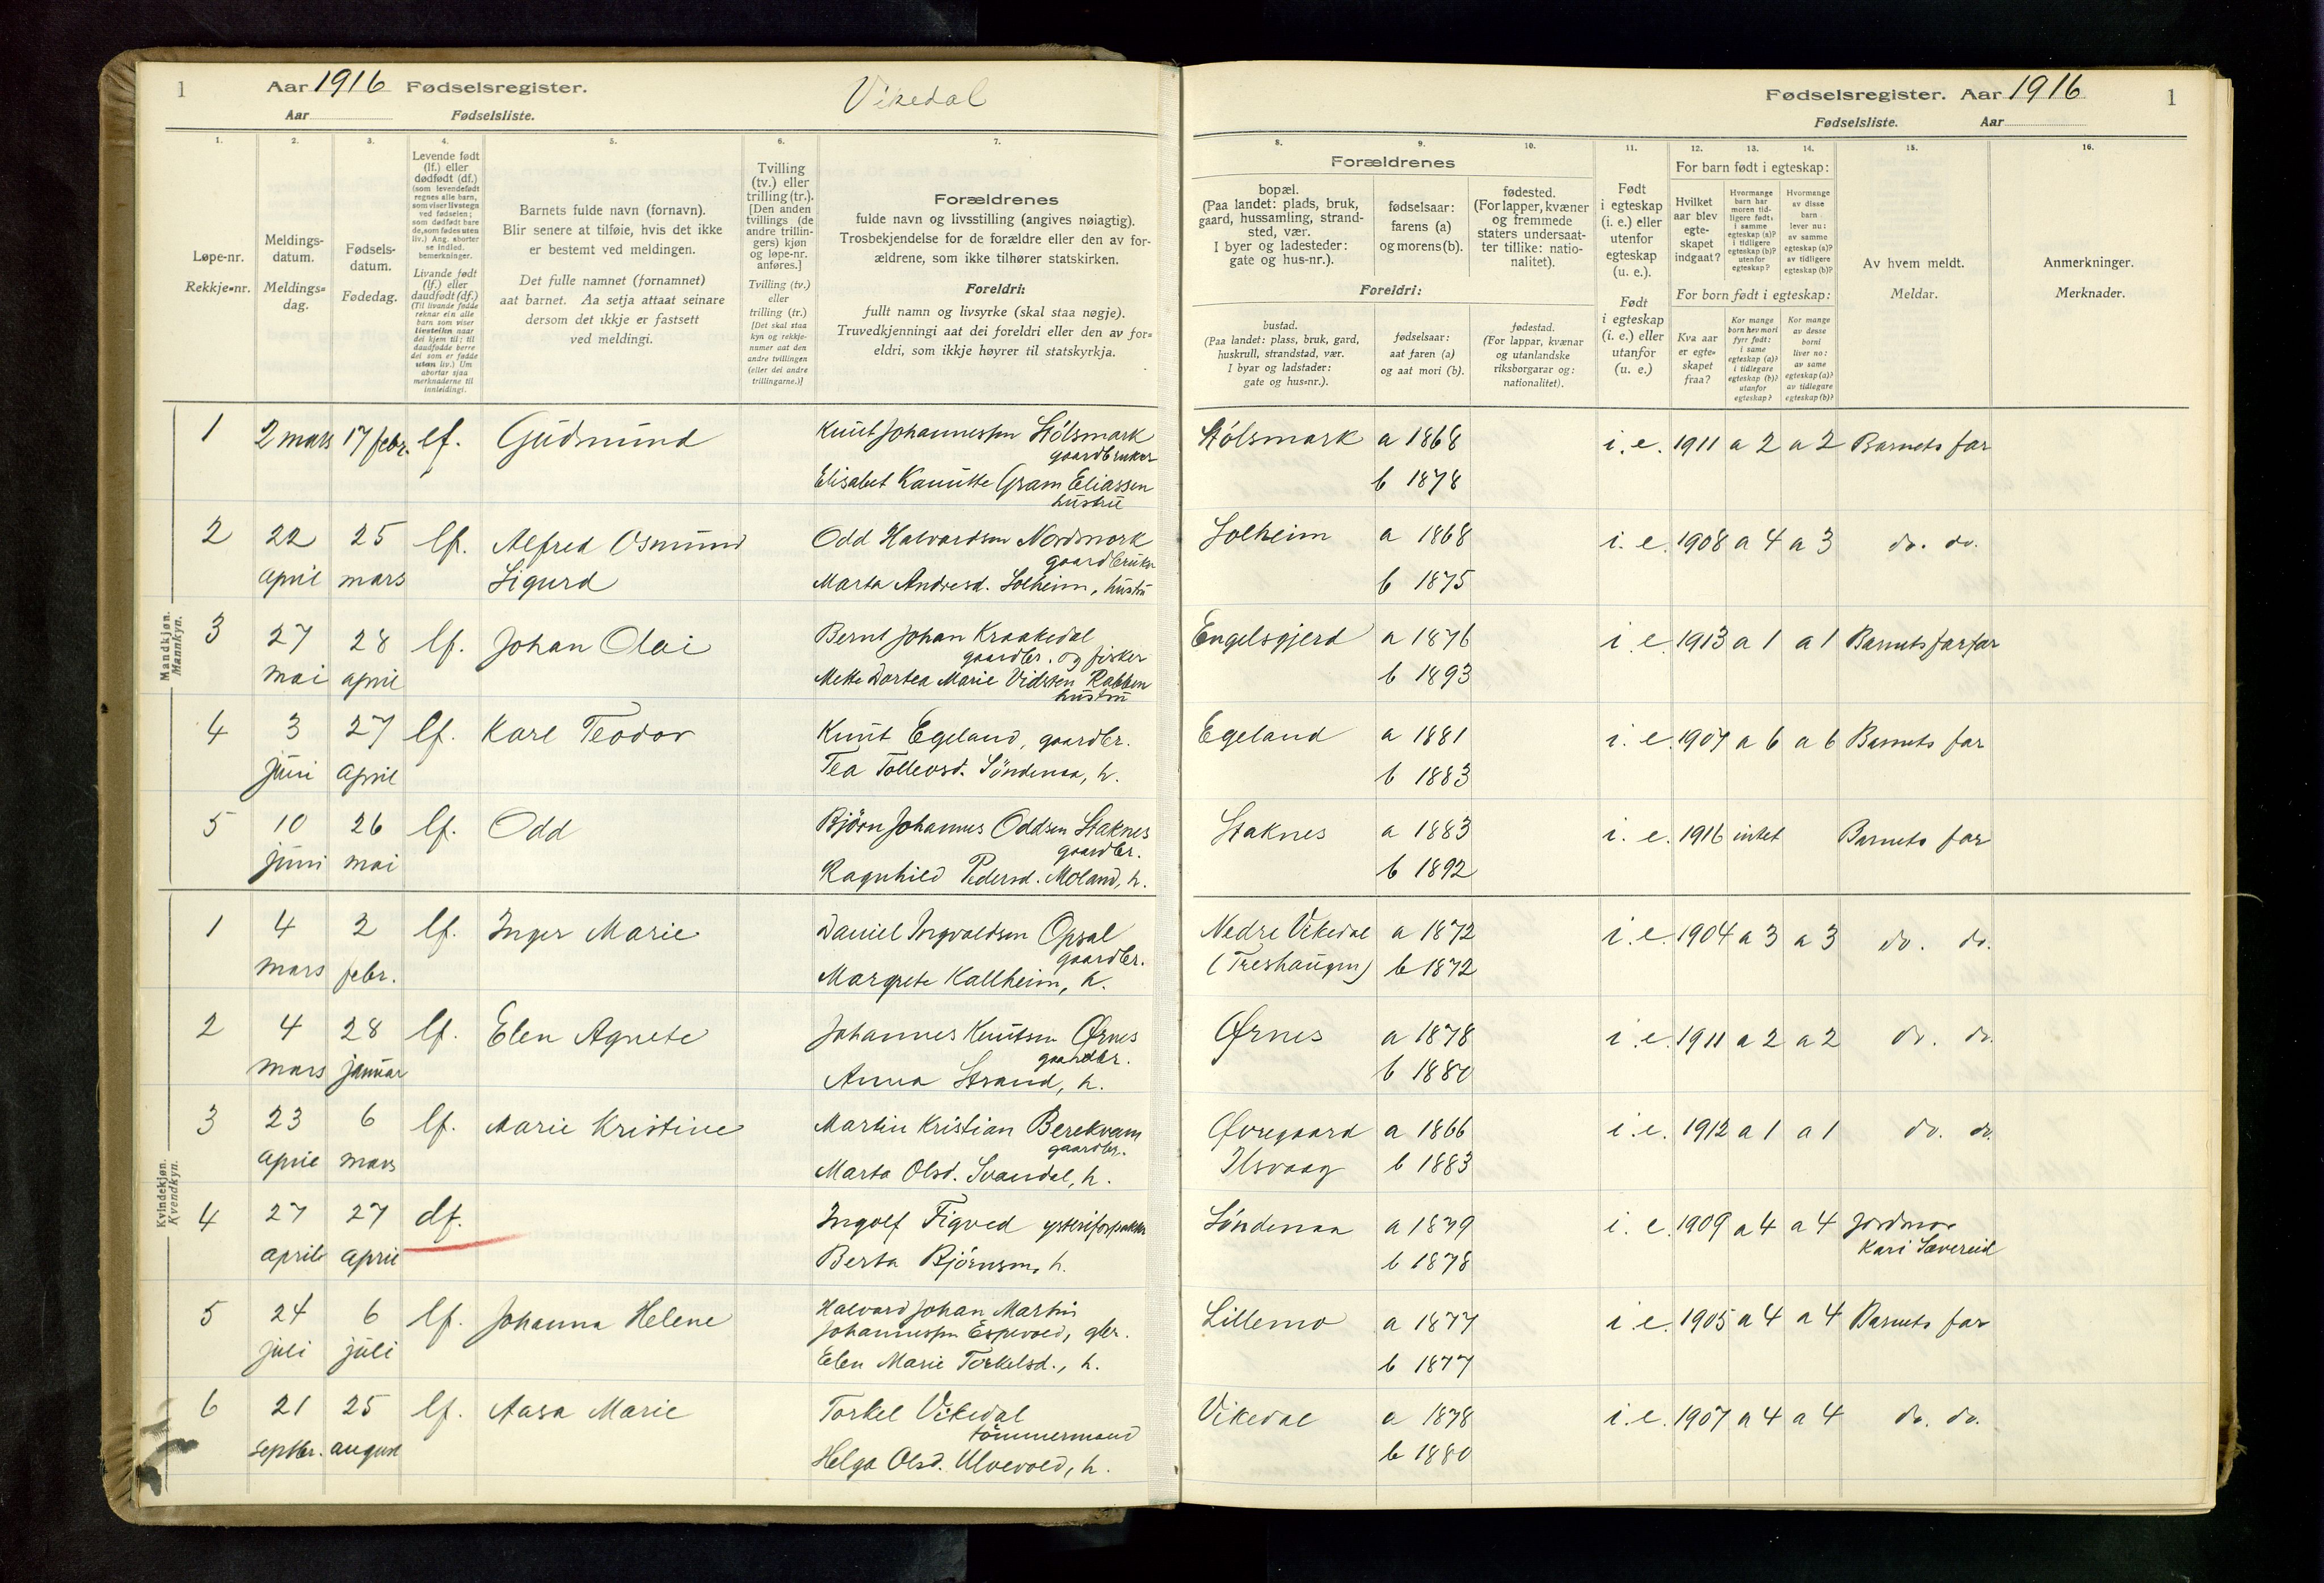 1
Aar 1916 Fødselsregister.
Aar Fødselsliste.
Vikedal
1. 2. 3. 4. 5. 6. 7.
Løpe-nr.
Rekkje-nr.
Meldings-
datum.
Meldings-
dag.
Fødsels-
datum.
Fødedag.
Levende født
(lf.) eller
dødfødt (df.)
(som levendefødt
regnes alle barn,
som viser livstegn
ved fødselen;
som dødfødt bare
de, som fødes uten
liv.) Ang. aborter
se indled.
bemerkninger.
Livande født
(lf.) eller
daudfødt (df.)
(Til livande fødde
reknar ein alle
born som viser
livsteikn naar
dei kjem til; til
daudfødde berre
dei som er fødde
utan liv.) Um
abortar sjaa
merknaderne til
innleidingi.
Barnets fulde navn (fornavn).
Blir senere at tilføie, hvis det ikke
er bestemt ved meldingen.
Det fulle namnet (fornamnet)
aat barnet. Aa setja attaat seinare
dersom det ikkje er fastsett
ved meldingi.
Tvilling
(tv.) eller
trilling (tr.).
[Den anden
tvillings (de
andre trillin-
gers) kjøn
og løpe-nr.
anføres.]
Tvilling (tv.)
eller
trilling (tr.)
[Det skal staa
kyn og rekkje-
numer aat den
andre tvillingen
(eller dei andre
trillingarne.)]
Forældrenes
fulde navn og livsstilling (angives nøiagtig).
Trosbekjendelse for de forældre eller den av for-
ældrene, som ikke tilhører statskirken.
Foreldri:
fullt namn og livsyrke (skal staa nøgje).
Truvedkjenningi aat dei foreldri eller den av for-
eldri, som ikkje høyrer til statskyrkja.
Mandkjøn.
Mannkyn.
1 2 mars 17 febr. lf. Gudmund Knut Johannessen Stólsmark
gaardbruker
Elisabet Kanutte Gram Eliassen
hustru
2 22 25 lf. Alfred Osmund Odd Halvardsen Nordmork
gaardbruker
april mars Sigurd Marta Andresd. Solheim, hustru
3 27 28 lf. Johan Olai Bernt Johan Kraakedal
gaardbr. og fisker
mai april Mette Dortea Marie Vidsten Rabben
hustru
4 3 27 lf. Karl Teodor Knut Egeland, gaardbr.
juni april Tea Tollevsd. Söndenaa, h.
5 10 26 lf. Odd Björn Johannes Oddsen Staknes
gaardbr.
juni mai Ragnhild Pedersd. Moland, h.
Kvindekjøn.
Kvendkyn.
1 4 2 lf. Inger Marie Daniel Ingvaldsen Opsal
gaardbr.
mars febr. Margrete Kallheim, h.
2 4 28 lf. Elen Agnete Johannes Knutsen Ørnes
gaardbr.
mars januar Anna Strand, h.
3 23 6 lf. Marie Kristine Martin Kristian Berekvam
gaardbr.
april mars Marta Olsd. Svandal, h.
4 27 27 df. Ingolf Figved
april april Berta Björnsen, h.
5 24 6 lf. Johanna Helene Halvard Johan Martin
Johannessen Espevold, gbr.
juli juli Elen Marie Torkelsd., h.
6 21 25 lf. Aasa Marie Torkel Vikedal
tömmermand
septbr. august Helga Olsd. Ulvevold, h.
Fødselsregister. Aar 1916 1
Fødselsliste. Aar
8. 9. 10. 11. 12. 13. 14. 15. 16.
Forældrenes
bopæl.
(Paa landet: plads, bruk,
gaard, hussamling, strand-
sted, vær.
I byer og ladesteder:
gate og hus-nr.).
fødselsaar:
farens (a)
og morens (b).
fødested.
(For lapper, kvæner
og fremmede
staters undersaat-
ter tillike: natio-
nalitet).
Foreldri:
bustad.
(Paa landet: plass, bruk, gard,
huskrull, strandstad, vær.
I byar og ladstader:
gate og hus-nr.).
fødselsaar:
aat faren (a)
og aat mori (b).
fødestad.
(For lappar, kvænar
og utanlandske
riksborgarar og:
nationalitet).
Født
i egteskap
(i. e.) eller
utenfor
egteskap
(u. e.).
Født
i egteskap
(i. e.) eller
utanfor
egteskap
(u. e.)
For barn født i egteskap:
Hvilket
aar blev
egte-
skapet
indgaat?
Hvormange
barn har
moren tid-
ligere født:
i samme
egteskap (a)?
i tidligere
egteskap (b)?
utenfor
egteskap?
Hvormange
av disse
barn
lever nu:
av samme
egteskap (a)?
av tidligere
egteskap (b)?
For born født i egteskap:
Kva aar
er egte-
skapet
fraa?
Kor mange
born hev mori
fyrr født:
i same
egteskap (a)?
i tidlegare
egteskap (b)?
utanfor
egteskap?
Kor mange
av desse
borni
liver no:
av same
egteskap (a)?
av tidlegare
egteskap (b)?
Av hvem meldt.
Meldar.
Anmerkninger.
Merknader.
Stólsmark a 1868 i. e. 1911 a 2 a 2 Barnets far
b 1878
Solheim a 1868 i. e. 1908 a 4 a 3 do. do.
b 1875
Engelsgjerd a 1876 i. e. 1913 a 1 a 1 Barnets farfar
b 1893
Egeland a 1881 i. e. 1907 a 6 a 6 Barnets far
b 1883
Staknes a 1883 i. e. 1916 intet Barnets far
b 1892
Nedre Vikedal a 1872 i. e. 1904 a 3 a 3 do. do.
(Treshaugen) b 1872
Ørnes a 1878 i. e. 1911 a 2 a 2 do. do.
b 1880
Øvregaard a 1866 i. e. 1912 a 1 a 1 do. do.
Ilsvaag b 1883
Söndenaa a 1879 i. e. 1909 a 4 a 4 Jordmor
Kari Sævereid
b 1878
Lillemo a 1877 i. e. 1905 a 4 a 4 Barnets far
b 1877
Vikedal a 1878 i. e. 1907 a 4 a 4 do. do.
b 1880